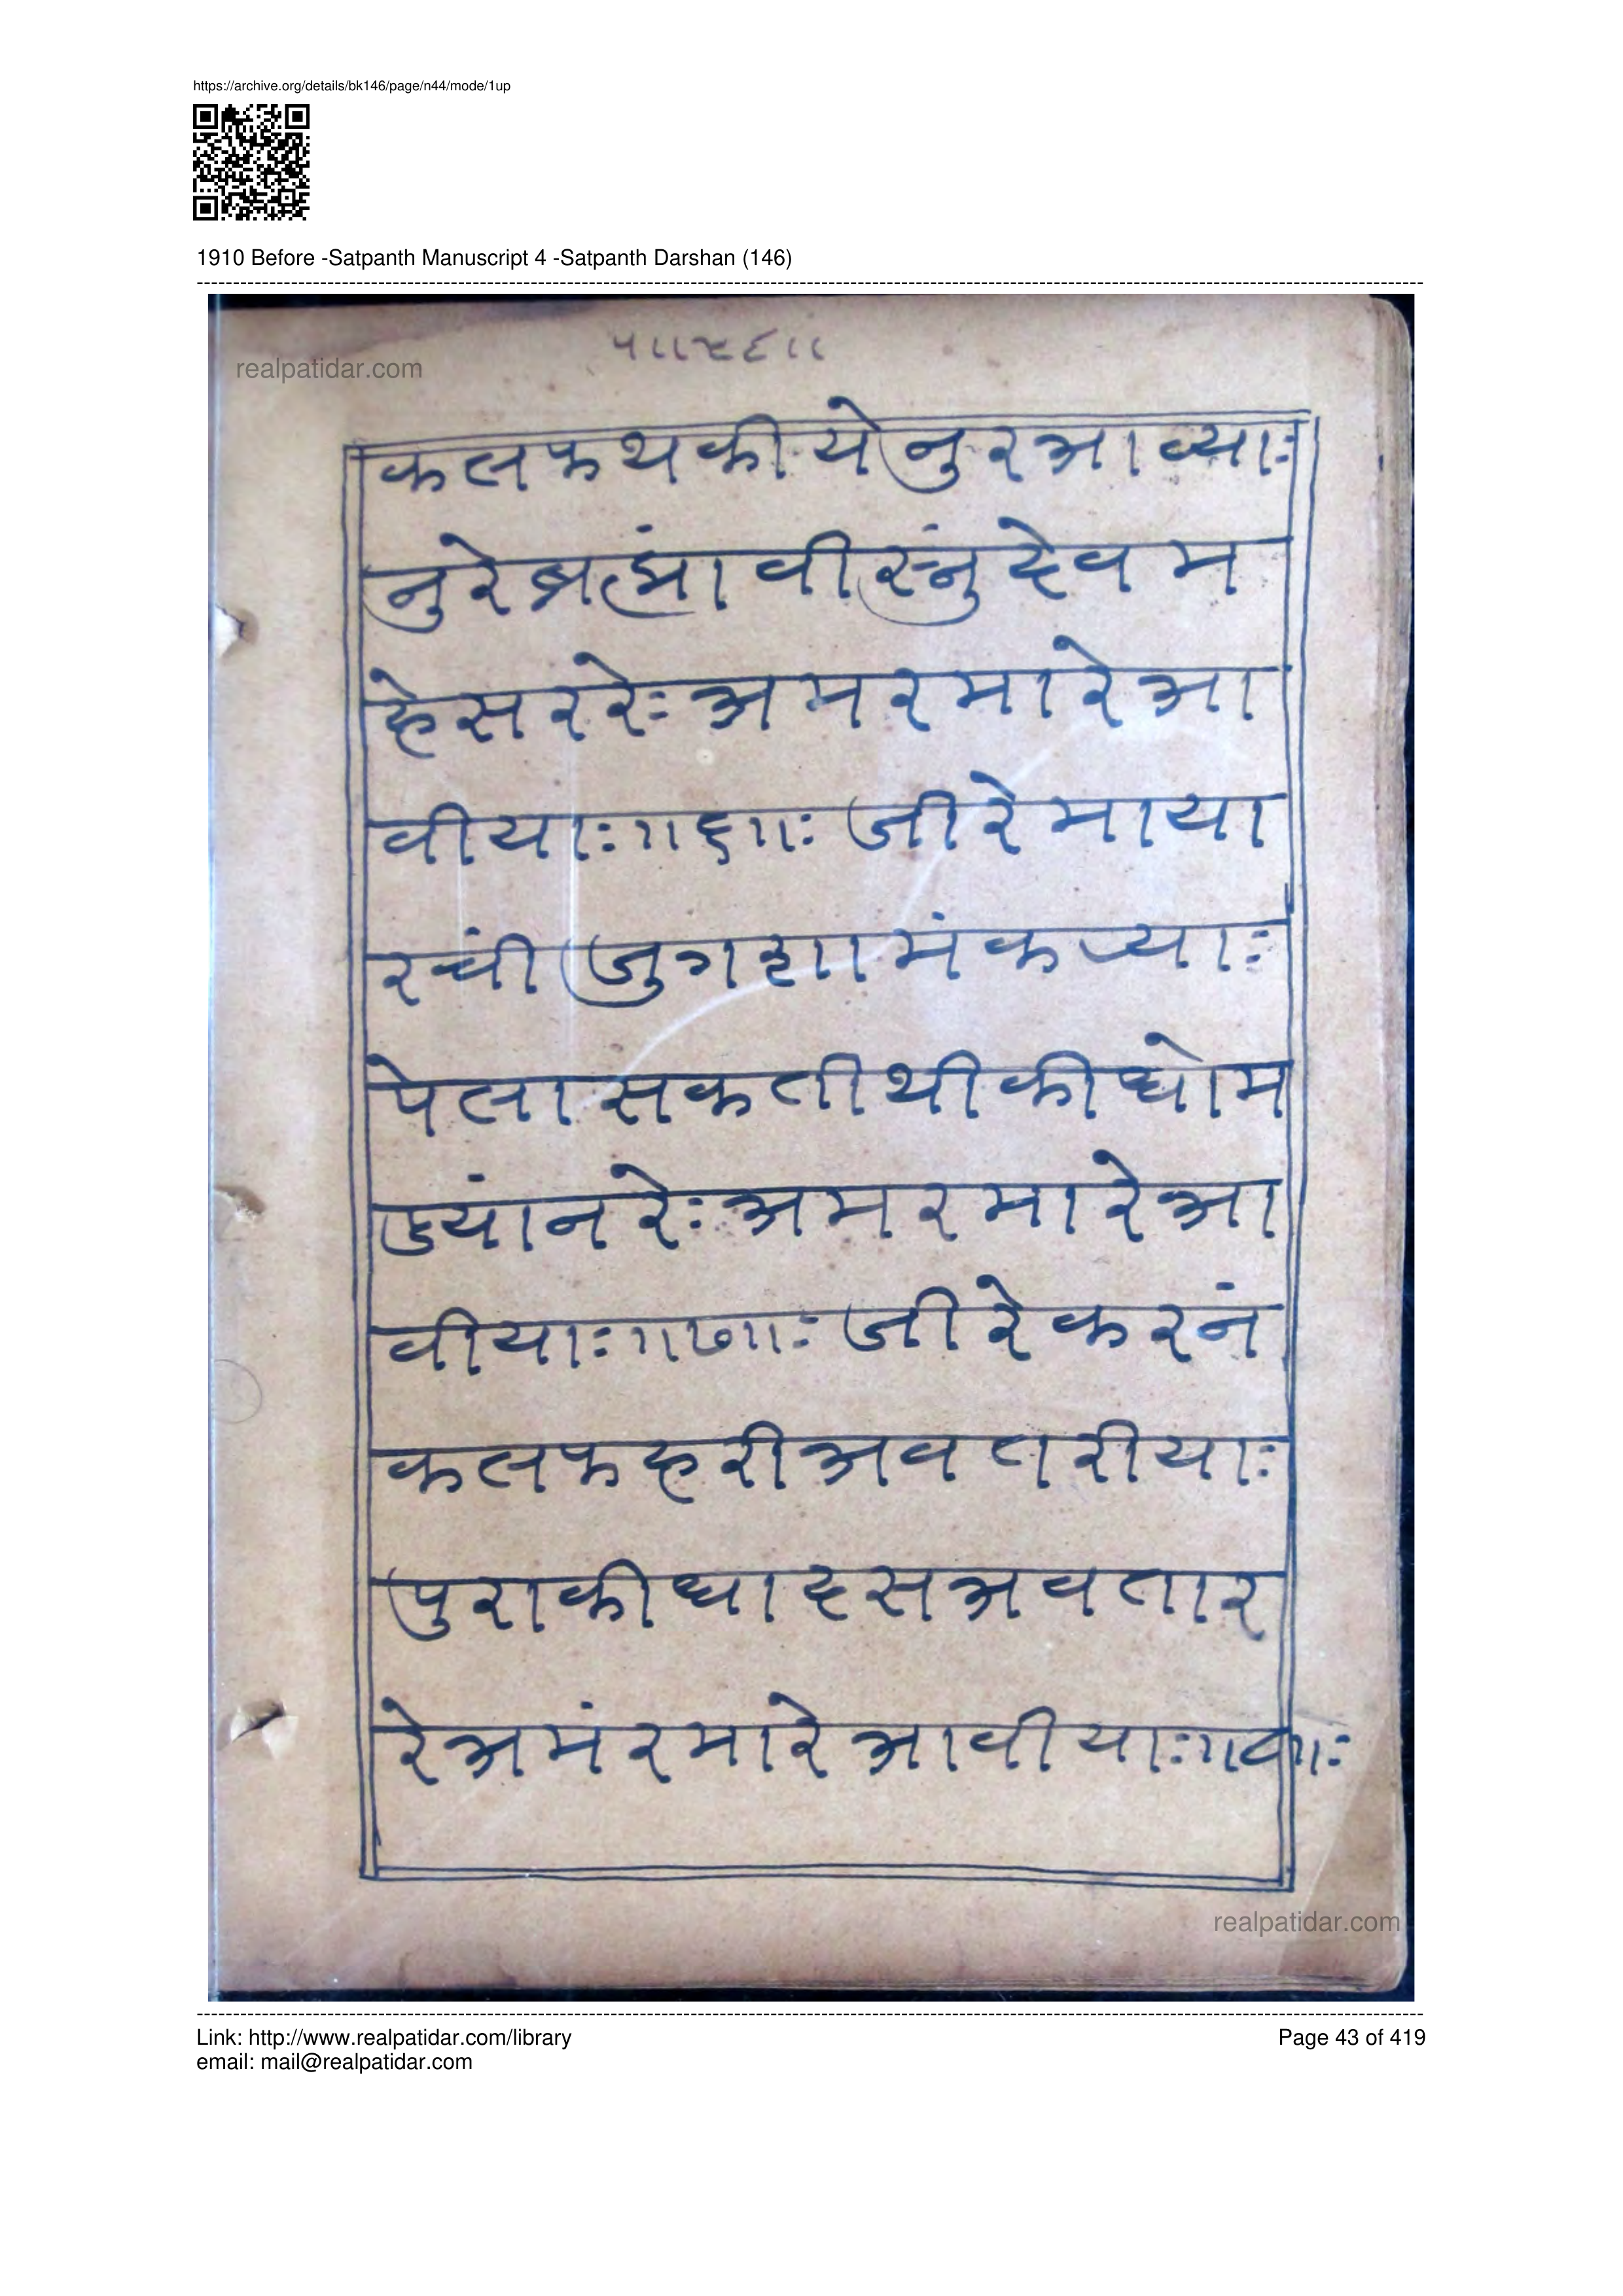 https://archive.org/details/bk146/page/n44/mode/1up
1910 Before -Satpanth Manuscript 4 -Satpanth Darshan (146)
realpatidar.com
कलफथकीयेनुरआव्याः
नुरेब्रह्मांवीस्नुंदेवम
हेसररेःअमरमारेआ
वीयाः॥६॥ःजीरेमाया
रचींजुगठामंकर्याः
पेलासकतीथीकीधोम
ड्यांनरेःअमरमारेआ
वीयाः॥७॥ःजीरेकरनं
कलफहरीअवतरीयाः
पुराकीधादसअवतार
रेअमंरमारेआवीयाः॥८॥ः
realpatidar.com
Link: http://www.realpatidar.com/library
Page 43 of 419
email: mail@realpatidar.com